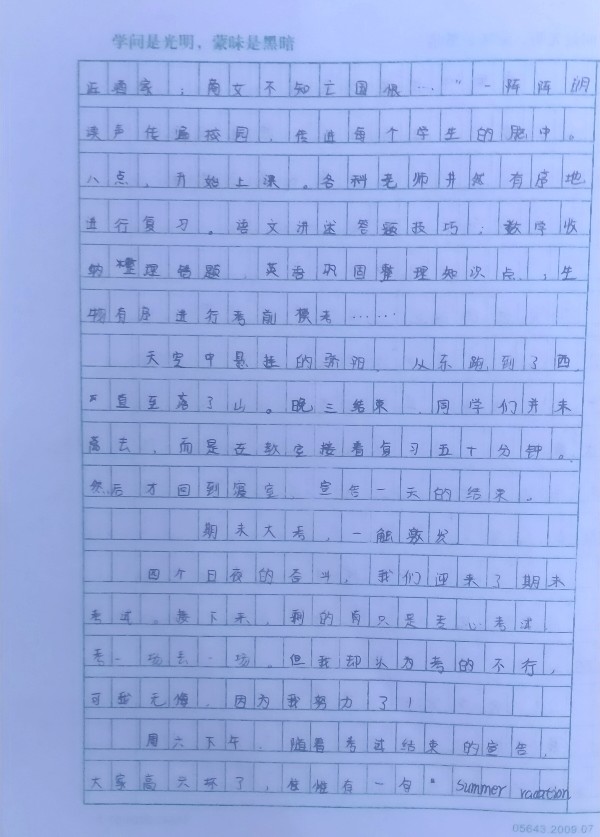 学问是光明，蒙昧是黑暗
近酒家；商女不知亡国恨…"一阵阵朗
读声传遍校园，传进每个学生的脑中。
八点，开始上课。各科老师井然有序地
进行复习。语文讲述答题技巧；数学收
纳整理错题，英语巩固整理知识点，生
物有序进行考前模考……
天空中悬挂的骄阳，从东跑到了西
直至落了山。晚三结束，同学们并未
离去，而是在教室接着复习五十分钟。
然后才回到寝室，宣告一天的结束。
期末大考，一触激发
四个日夜的奋斗，我们迎来了期末
考试。接下来，剩的有只是专心考试
考一场丢一场。但我却认为考的不行，
可我无悔，因为我努力了！
周六下午，随着考试结束的宣告，
大家高兴坏了，有一句"summer vacation
05643.2009.07